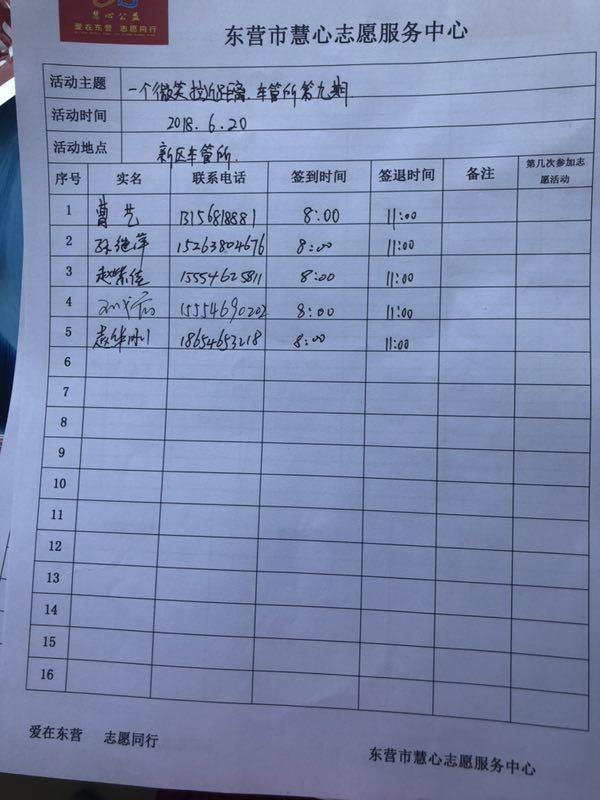 慧心公益
爱在东营 志愿同行
东营市慧心志愿服务中心
活动主题 一个微笑拉近距离.车管所第九期
活动时间 2018.6.20
活动地点 新区车管所.
序号 实名 联系电话 签到时间 签退时间 备注 第几次参加志愿活动
1 曹艺 13156818881 8:00 11:00
2 孙继萍 15263804676 8:00 11:00
3 15554625811 8:00 11:00
4 15554690202 8:00 11:00
5 18654653218 8:00 11:00
6
7
8
9
10
11
12
13
14
15
16
爱在东营 志愿同行
东营市慧心志愿服务中心